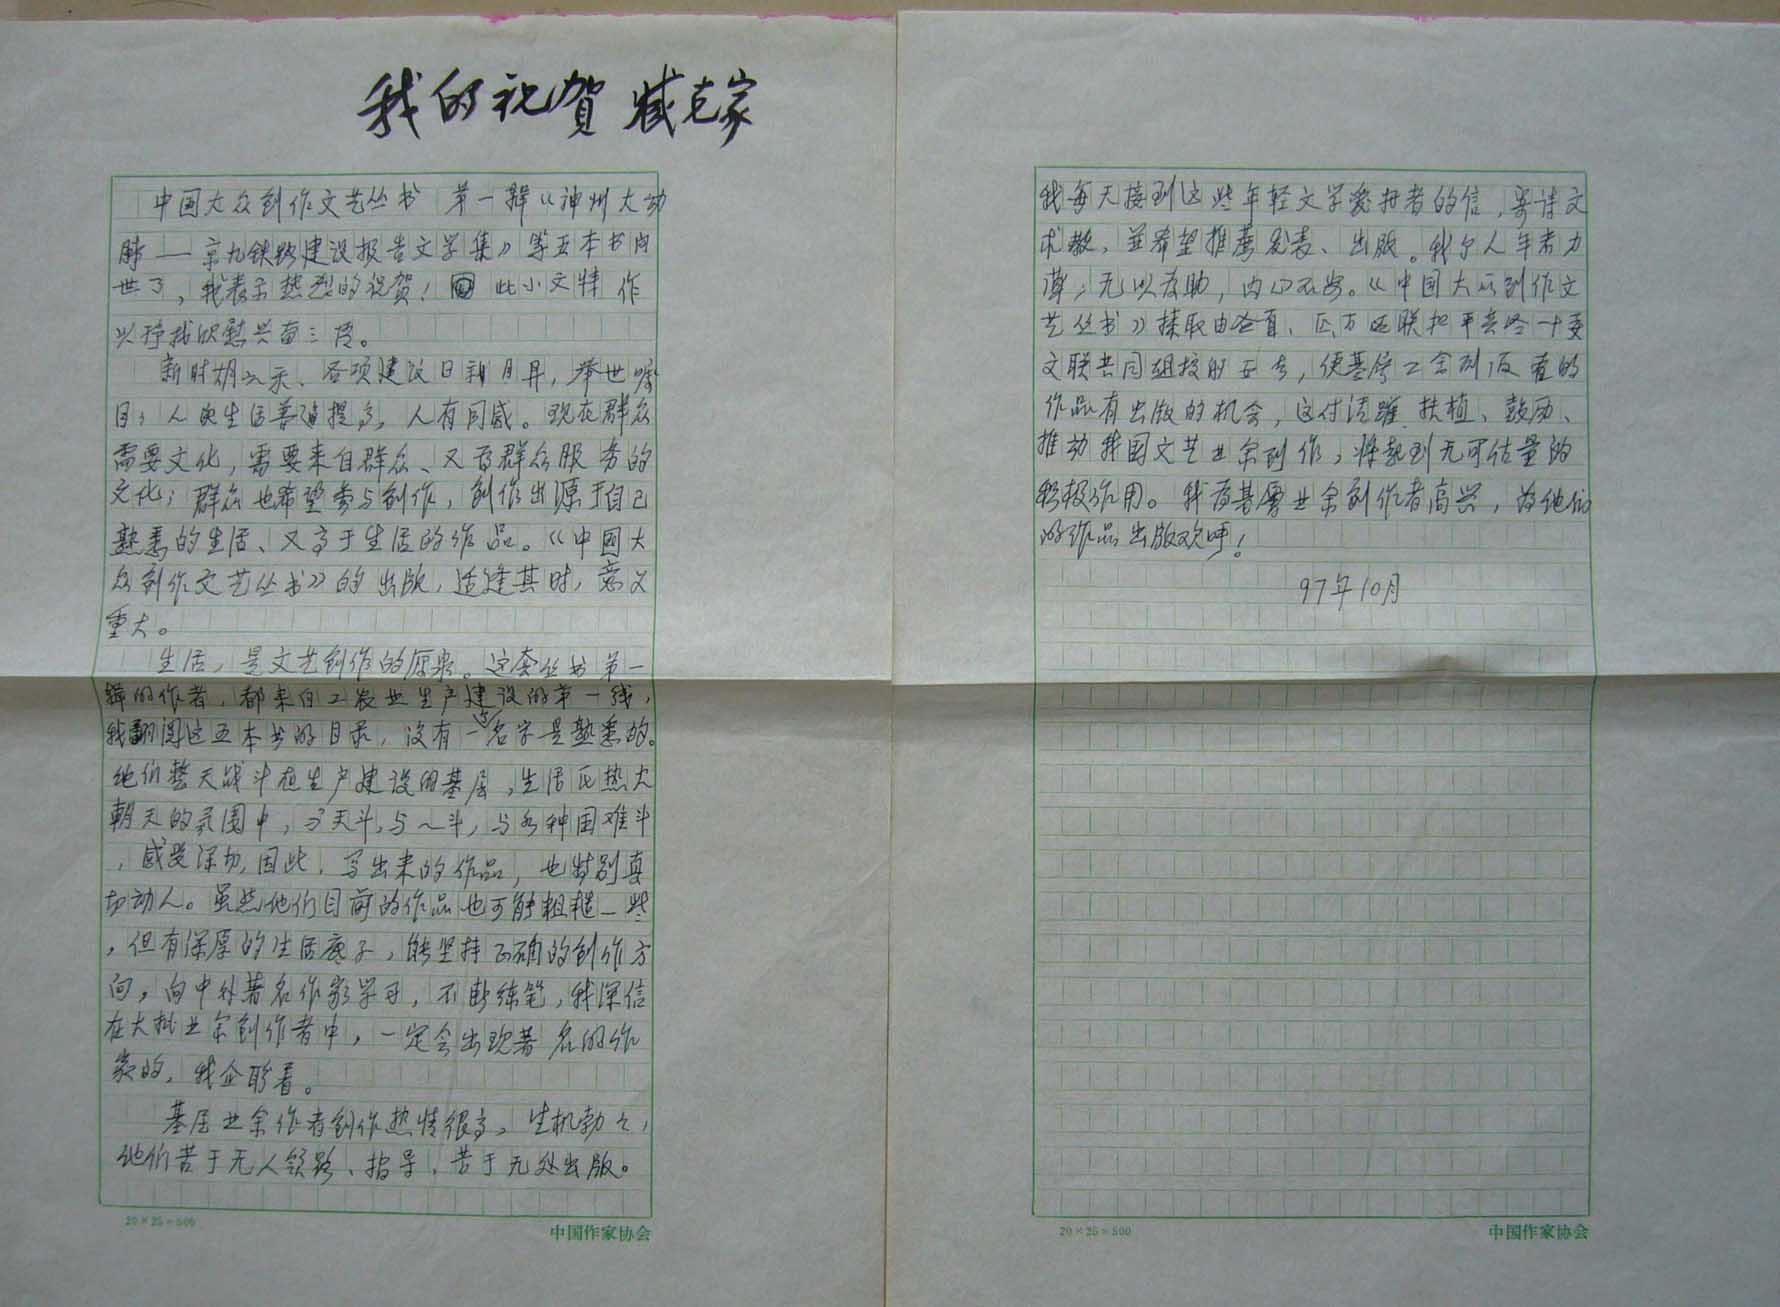 我的祝贺 臧克家
中国大众创作文艺丛书 第一辑《神州大动
脉——京九铁路建设报告文学集》等五本书问
世了,我表示热烈的祝贺! 此小文特作
以抒我欣慰兴奋之度。
新时期以来、各项建设日新月异,举世瞩
目;人民生活普遍提高,人有同感。现在群众
需要文化,需要来自群众、又为群众服务的
文化;群众也希望参与创作,创作出源于自己
熟悉的生活、又高于生活的作品。《中国大
众创作文艺丛书》的出版,适逢其时,意义
重大。
生活,是文艺创作的源泉。这套丛书第一
辑的作者,都来自工农业生产建设的第一线,
我翻阅这五本书的目录,没有一个名字是熟悉的。
他们整天战斗在生产建设的基层,生活在热火
朝天的氛围中,与天斗,与人斗,与各种困难斗
,感受深切,因此,写出来的作品,也特别真
切动人。虽然他们目前的作品也可能粗糙一些
,但有深厚的生活底子,能坚持正确的创作方
向,向中外著名作家学习,不断练笔,我深信
在大批业余创作者中,一定会出现著名的作
家的,我企盼着。
基层业余作者创作热情很高,生机勃々,
他们苦于无人领路、指导,苦于无处出版。
20×25=500
中国作家协会
我每天接到这些年轻文学爱好者的信,寄诗文
求教,并希望推荐发表、出版。我个人年老力
薄,无以为助,内心不安。《中国大众创作文
艺丛书》采取由 文联共同组
文联共同组 的 ,使基层业余创作者的
作品有出版的机会,这对活跃、扶植、鼓励、
推动我国文艺业余创作,将起到无可估量的
积极作用。我为基层业余创作者高兴,为他们
的作品出版欢呼!
97年10月
20×25=500
中国作家协会